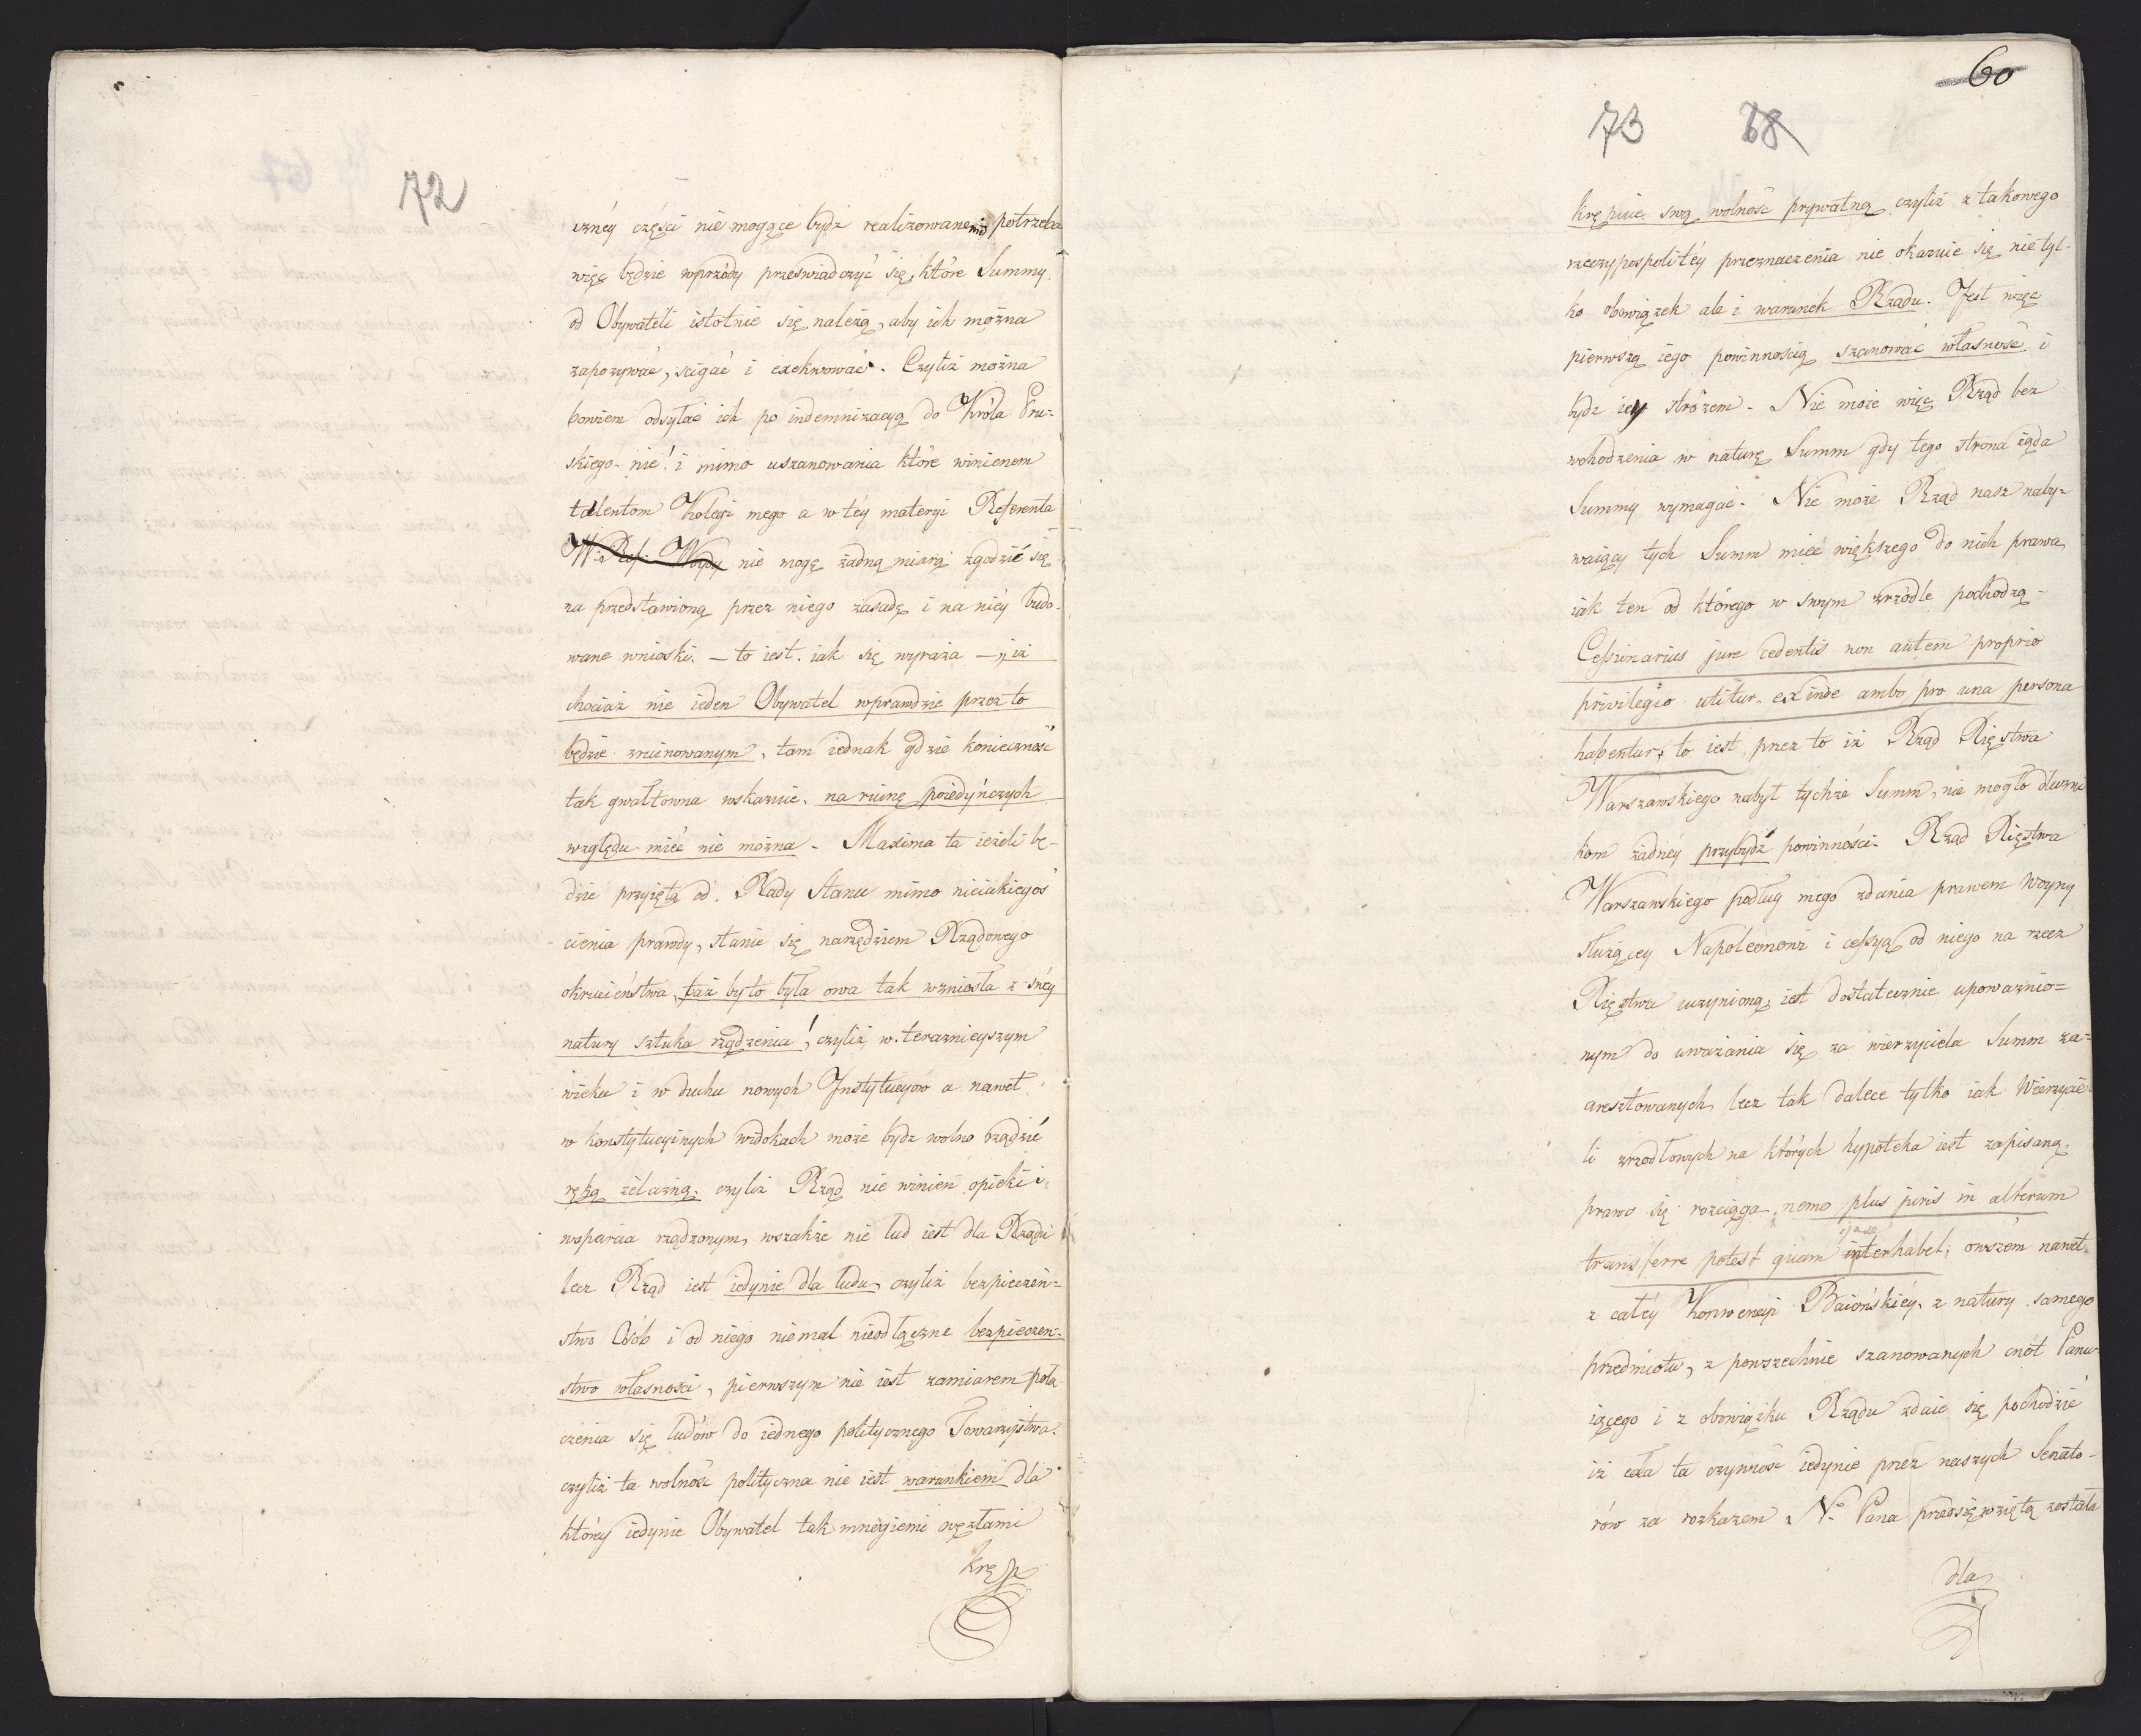 72
czney części nie mogące bydź realizowanemi potrzeba
więc będzie wprzódy przeświadczyć się, które Summy
od Obywateli istotnie się należą, aby ich można
zapozywać, ścigać i exekwować. Czyliż można
bowiem odsyłać ich po indemnizacyą do Króla Pru-
skiego - nie! i mimo uszanowania które winienem
talentom Kolegi mego a w téy materyi Referenta
nie mogę żadną miarą zgodzić się
za przedstawioną przez niego zasadę i na niéy budo-
wane wnioski. — to iest. iak się wyraża — „iż
chociaż nie ieden Obywatel wprawdzie przez to
będzie zruinowanym, tam iednak gdzie konieczność
tak gwałtowna wskazuie, na ruinę poiedyńczych
względu mieć nie można - Maxima ta ieżeli bę-
dzie przyiętą od Rady Stanu mimo nieiakiegoś
cienia prawdy, stanie się narzędziem Rządowego
okrucieństwa, taż by to była owa tak wzniosła z swéy
natury sztuka rządzenia! czyliż w teraznieyszym
wieku i w duchu nowych Instytucyów a nawet
w konstytucyinych widokach może bydz wolno rządzić
ręką żelazną, czyliż Rząd nie winien opieki i
wsparcia rządzonym, wszakże nie lud iest dla Rządu
lecz Rząd iest iedynie dla ludu, czyliż bezpieczeń=
stwo Osób i od niego niemal nieodłączne bezpieczeń=
stwo własności, pierwszym nie iest zamiarem połą
czenia się ludów do iednego politycznego Towarzystwa.
czyliż ta wolność polityczna nie iest warunkiem dla
któréy iedynie Obywatel tak mnogiemi węzłami
krę
60
73 68
krępuie swą wolność prywatną czyliż z takowego
rzeczypospolitéy przeznaczenia nie okazuie się nie tyl-
ko obowiązek ale i warunek Rządu. Jest więc
pierwszą iego powinnością szanować własność i
bydz iey stróżem - Nie może więc Rząd bez
wchodzenia w naturę Summ gdy tego strona żąda
Summy wymagać - Nie może Rząd nasz naby=
waiący tych Summ mieć większego do nich prawa
iak ten od którego w swym źrzódle pochodzą -
Cessionarius jure cedentis non autem proprio
privilegio utitur, exinde ambo pro una persona
habentur, to iest przez to iż Rząd Xięstwa
Warszawskiego nabył tychże Summ, nie mogło dłużni
kom żadnéy przybydź powinności. Rząd Xięstwa
Warszawskiego podług mego zdania prawem woyny
służącey Napoleonowi i cessyą od niego na rzecz
Xięstwa uczynioną, iest dostatecznie upoważnio=
nym do uważania się za wierzyciela Summ za=
aresztowanych, lecz tak dalece tylko iak Wierzycie-
li źrzodłowych na których hypoteka iest zapisaną
prawo się rozciąga - nemo plus juris in alterum
transferre potest quam ipse habet; owszem nawet
z całéy Konwencyi Baiońskiéy, z natury samego
przedmiotu, z powszechnie szanowanych cnót Panu-
iącego i z obowiązku Rządu zdaie się pochodzić
iż cała ta czynność iedynie przez naszych Senato-
rów za rozkazem N. Pana przedsięwziętą została
dla